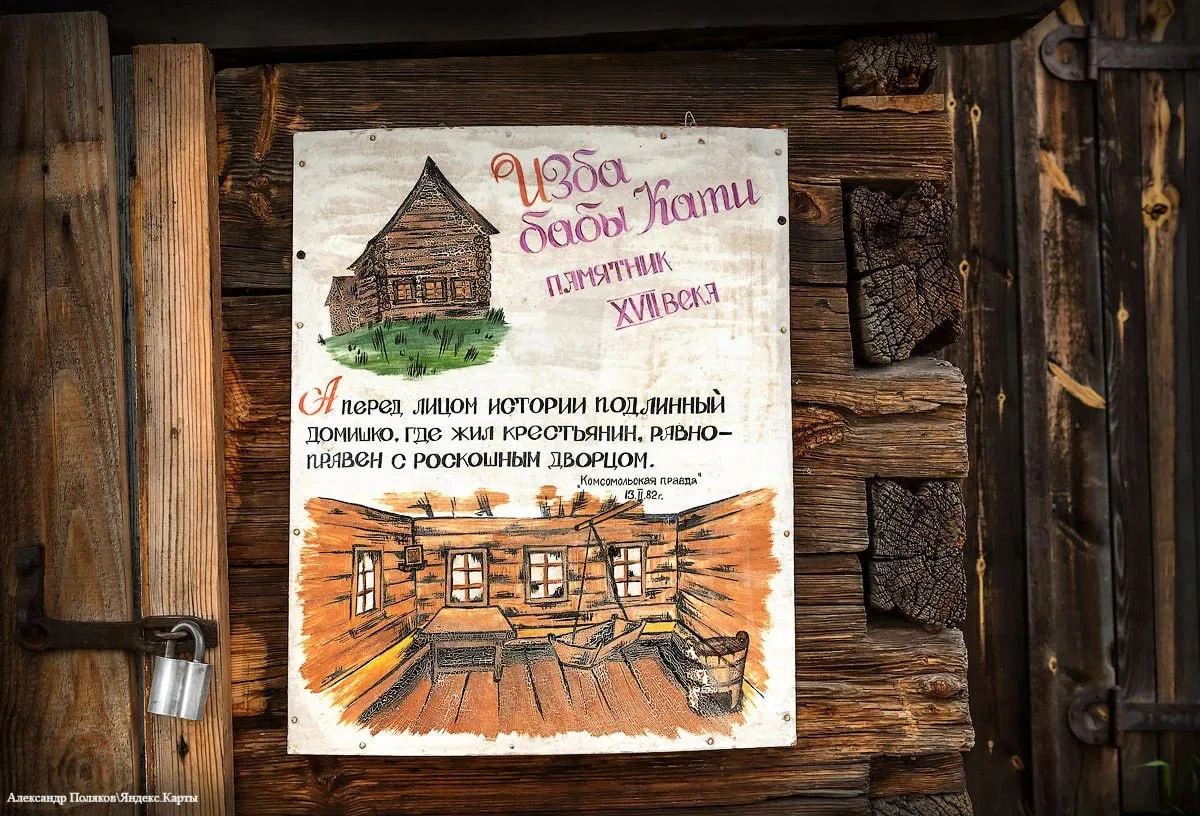 Изба
бабы Кати
памятник
XVII века
А перед лицом истории подлинный
домишко, где жил крестьянин, равно-
правен с роскошным дворцом.
"Комсомольская правда"
13.II.82г.
Александр Поляков\Яндекс.Карты